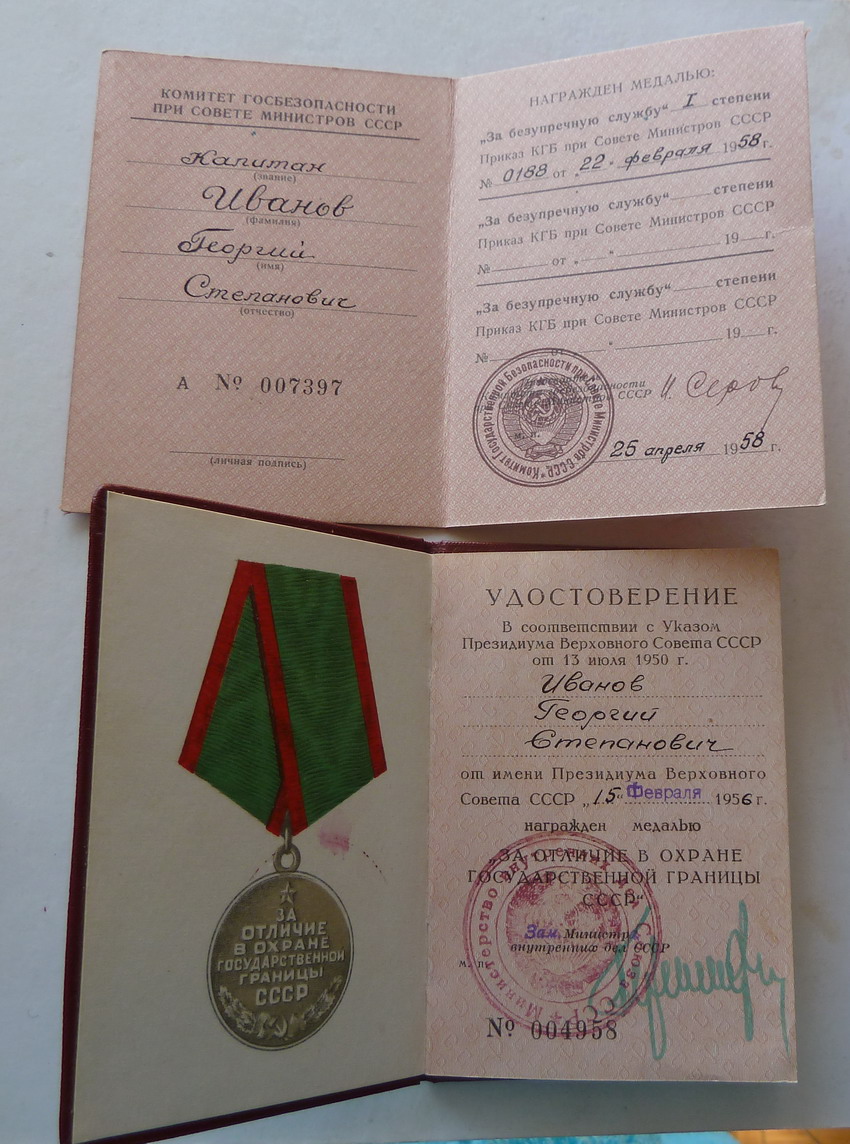 КОМИТЕТ ГОСБЕЗОПАСНОСТИ
ПРИ СОВЕТЕ МИНИСТРОВ СССР
Капитан
(звание)
Иванов
(фамилия)
Георгий
(имя)
Степанович
(отчество)
А № 007397
(личная подпись)
НАГРАЖДЕН МЕДАЛЬЮ:
„За безупречную службу“ I степени
Приказ КГБ при Совете Министров СССР
№ 0188 от „22“ февраля 1958г.
„За безупречную службу“ степени
Приказ КГБ при Совете Министров СССР
№ от „ “ 19 г.
„За безупречную службу“ степени
Приказ КГБ при Совете Министров СССР
№ от „ “ 19 г.
СССР И. Серов
Комитет Государственной Безопасности при Совете Министров СССР
м. п.
25 апреля 1958г.
ЗА
ОТЛИЧИЕ
В ОХРАНЕ
ГОСУДАРСТВЕННОЙ
ГРАНИЦЫ
СССР
УДОСТОВЕРЕНИЕ
В соответствии с Указом
Президиума Верховного Совета СССР
от 13 июля 1950 г.
Иванов
Георгий
Степанович
от имени Президиума Верховного
Совета СССР „15“ Февраля 1956г.
награжден медалью
„ЗА ОТЛИЧИЕ В ОХРАНЕ
ГОСУДАРСТВЕННОЙ ГРАНИЦЫ
СССР“
Зам. Министра
внутренних дел СССР
м. п.
Министерство внутренних дел Союза ССР
№ 004958